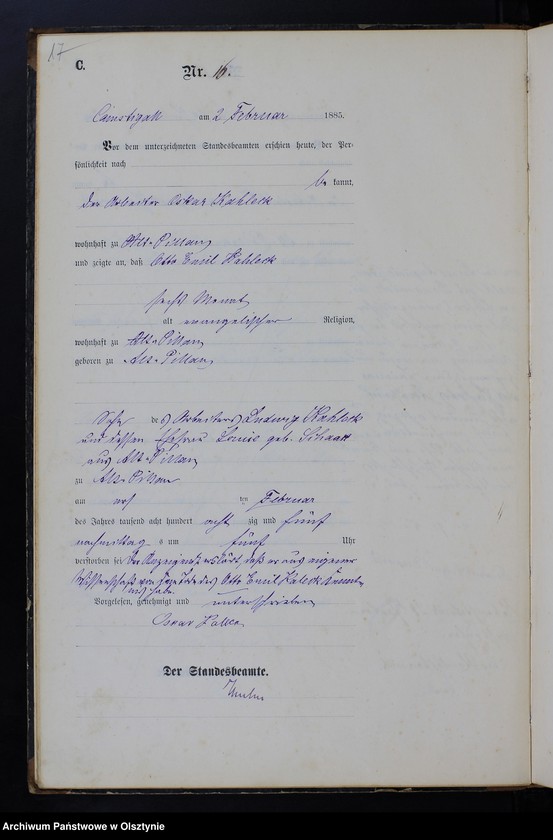 17
C.
Nr. 16.
am 2 Februar 1885.
Vor dem unterzeichneten Standesbeamten erschien heute, der Per-
sönlichkeit nach
be kannt,
der Arbeiter Oskar Kahleck
wohnhaft zu Alt-Pillau
und zeigte an, daß Otto Emil Kahleck
sechs Monat
alt evangelischer Religion,
wohnhaft zu Alt-Pillau
geboren zu Alt-Pillau
Sohn des Arbeiters Ludwig Kahleck
und dessen Ehefrau geb. Schaak
aus Alt-Pillau
zu Alt-Pillau
am ten Februar
des Jahres tausend acht hundert acht zig und fünf
nachmittags um fünf Uhr
verstorben sei. Der Anzeigende erklärt, daß er aus eigener
Wissenschaft von dem Tode des Otto Emil
habe.
Vorgelesen, genehmigt und unterschrieben
Oskar
Der Standesbeamte.
Archiwum Państwowe w Olsztynie